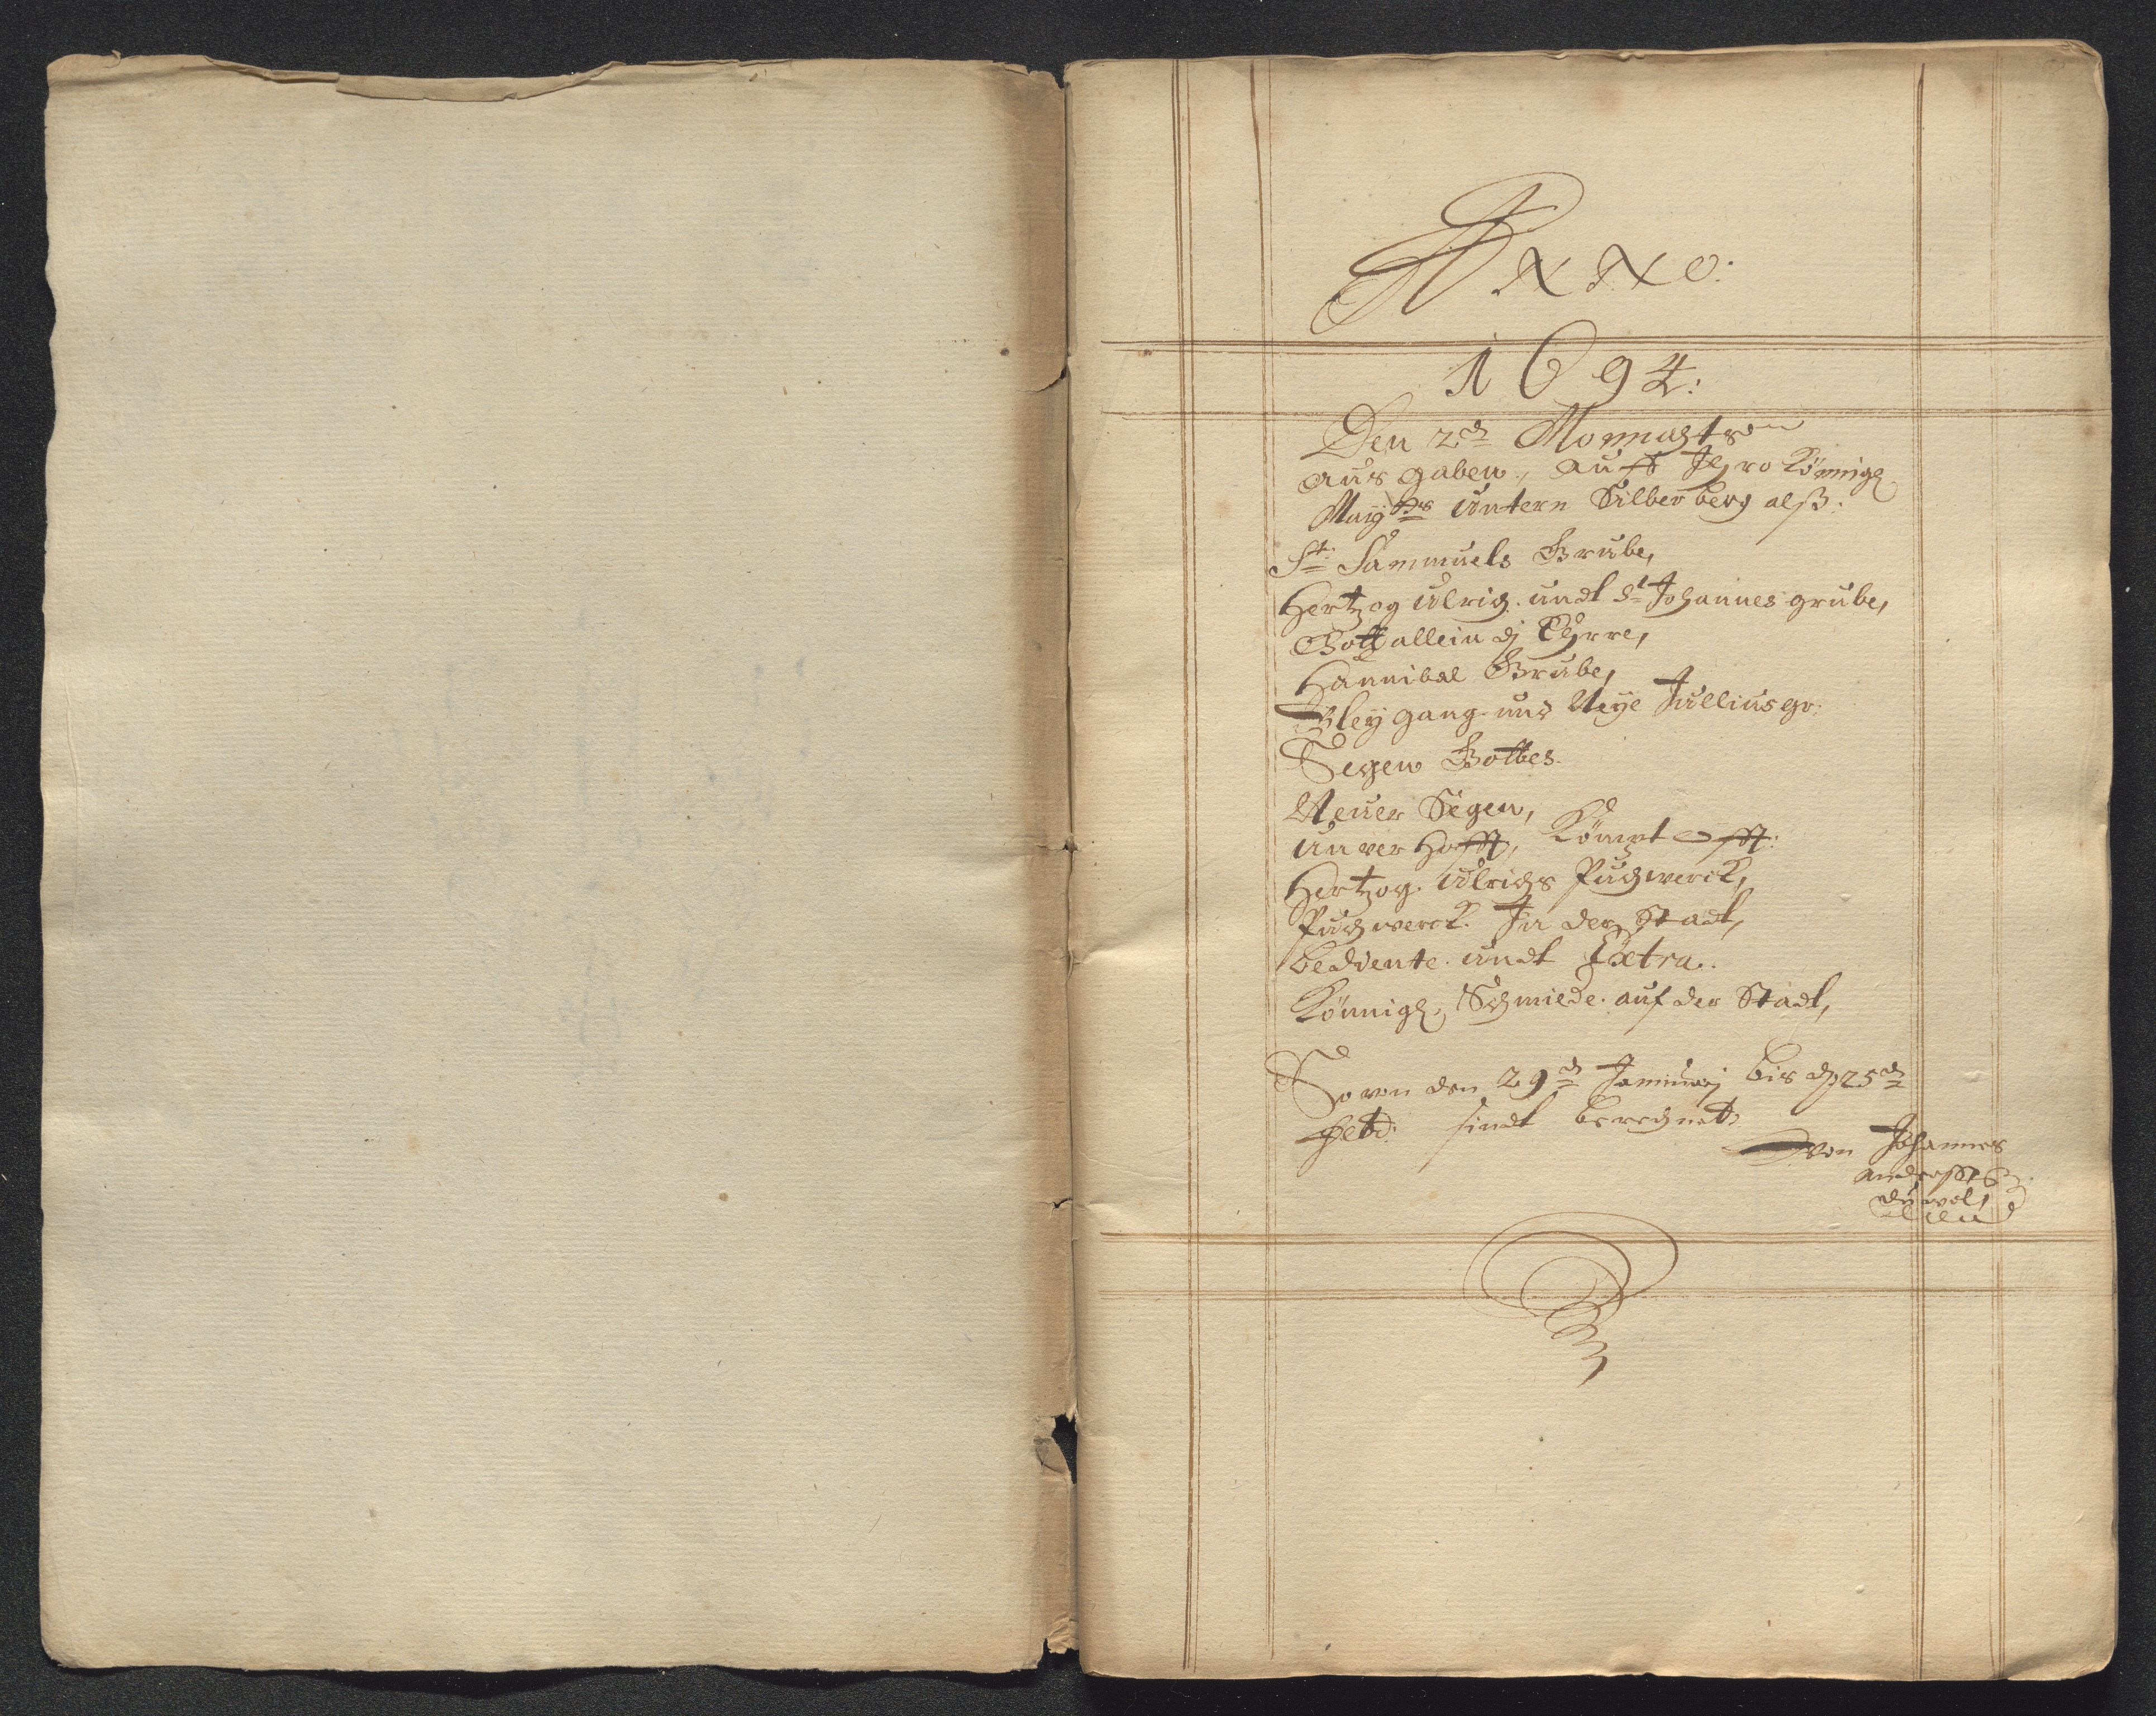 Anno:
1694:
Den 2ⁿ Monnahts
aus gaben, auff Ihro Königl
May untern Silber berg alß:
St: Sammuels Grube,
Hertzog Ulrich. undt St Johannes grube,
Gott allein dj Ehrre,
Hannibal Grube,
Bley gang. und Neye Julliusgr:
Segen Gottes.
Neuer Segen,
unver Hofft, Kömpt offt:
Hertzog. Ulrichs Puchwerck,
Puchwerck. In der Stadt,
bediente. undt Extra.
Könnigl, Schmiede. auf der Stadt,
So von den 29 Januarj bis d 25
feb: sindt berechnet
von Johannes